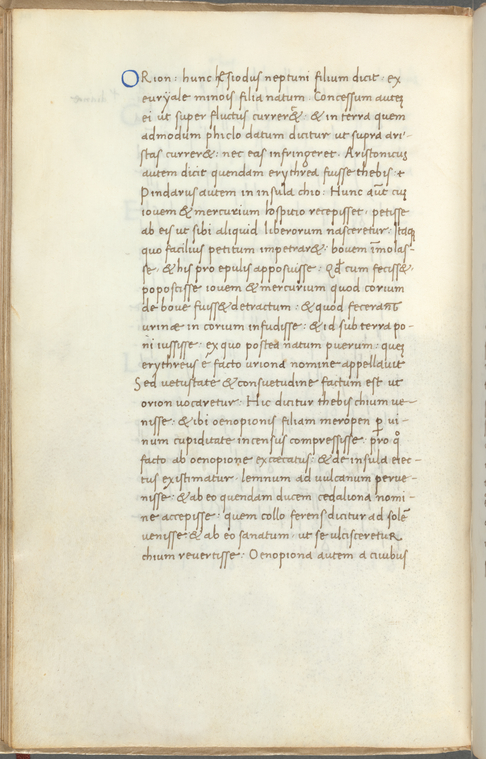 ORion: hunc hesiodus neptuni filium dicit: ex
euryale minois filia natum Concessum auteʒ
ei ut super fluctus curreret: & in terra quem
admodum phiclo datum dicitur ut supra ari-
stas curreret: nec eas infringeret. Aristonicus
autem dicit quendam erythrea fuisse thebis: &
Pindarus autem in insula chio: Hunc aũt cuʒ
iovem & mercurium hospicio recepisset: petisse
ab eis ut sibi aliquid liberorum nasceretur: Itaqʒ
quo facilius petitum impetraret: bovem ĩmolas-
se: & his pro epulis apposuisse: Qđ cum fecisset:
poposcisse iovem & mercurium quod corium
de bove fuisset detractum: & quod fecerant
urinæ in corium infudisse: & id sub terra po-
ni iussisse: ex quo postea natum puerum: queʒ
erythreus e facto uriona nomine appellavit
Sed vetustate & consuetudine factum est ut
orion vocaretur: Hic dicitur thebis chium ve-
nisse: & ibi oenopionis filiam meropen p vi-
num cupiditate incensus compressisse: pro q̊
facto ab oenopione excecatus: & de insula eiec-
tus existimatur: lemnum ad vulcanum perve-
nisse: & ab eo quendam ducem cedaliona nomi-
ne accepisse: quem collo ferens dicitur ad solẽ
venisse: & ab eo sanatum: ut se ulcisceretur
chium revertisse: Oenopiona autem a civibus